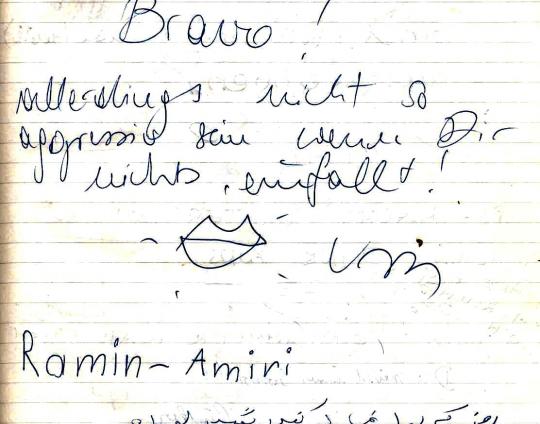 Bravo!
allerdings nicht so
aggressiv sein wenn Dir
nichts einfällt!
Ramin-Amiri